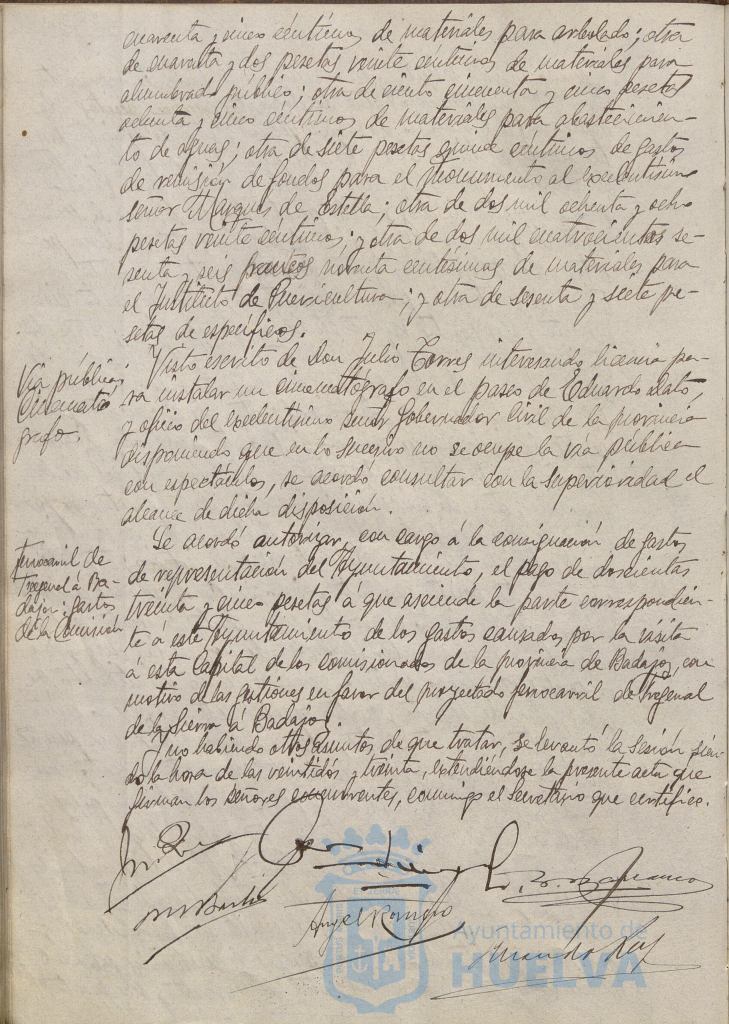 cuarenta y cinco céntimos de materiales para arbolado; otra
de cuarenta y dos pesetas veinte céntimos de materiales para
alumbrado público; otra de ciento cincuenta y cinco pesetas
ochenta y cinco céntimos de materiales para abastecimien-
to de aguas; otra de siete pesetas quince céntimos de gastos
de remisión de fondos para el Monumento al excelentísimo
señor Marqués de Estella; otra de dos mil ochenta y ocho
pesetas veinte céntimos; y otra de dos mil cuatrocientas se-
senta y seis francos noventa centísimas de materiales para
el Instituto de Puericultura; y otra de sesenta y siete pe-
setas de específicos.
Vía pública;
Cinemató
grafo.
Visto escrito de Don Julio Torres interesando licencia pa-
ra instalar un cinematógrafo en el paseo de Eduardo Dato,
y oficio del excelentísimo señor Gobernador Civil de la provincia
disponiendo que en lo sucesivo no se ocupe la vía pública
con espectáculos, se acordó consultar con la superioridad el
alcance de dicha disposición.
Ferrocarril de
Fregenal á Ba-
dajoz: gastos
de la Comisión
Se acordó autorizar, con cargo á la consignación de gastos
de representación del Ayuntamiento, el pago de doscientas
treinta y cinco pesetas á que asciende la parte correspondien-
te á este Ayuntamiento de los gastos causados por la visita
á esta Capital de los comisionados de la provincia de Badajoz, con
motivo de las gestiones en favor del proyectado ferrocarril de Fregenal
de la Sierra á Badajoz.
Y no habiendo otros asuntos de que tratar, se levantó la sesión sien-
do la hora de las veintidós y treinta, extendiéndose la presente acta que
firman los señores concurrentes, conmigo el Secretario que certifico.
Angel Romero
Ayuntamiento de
HUELVA